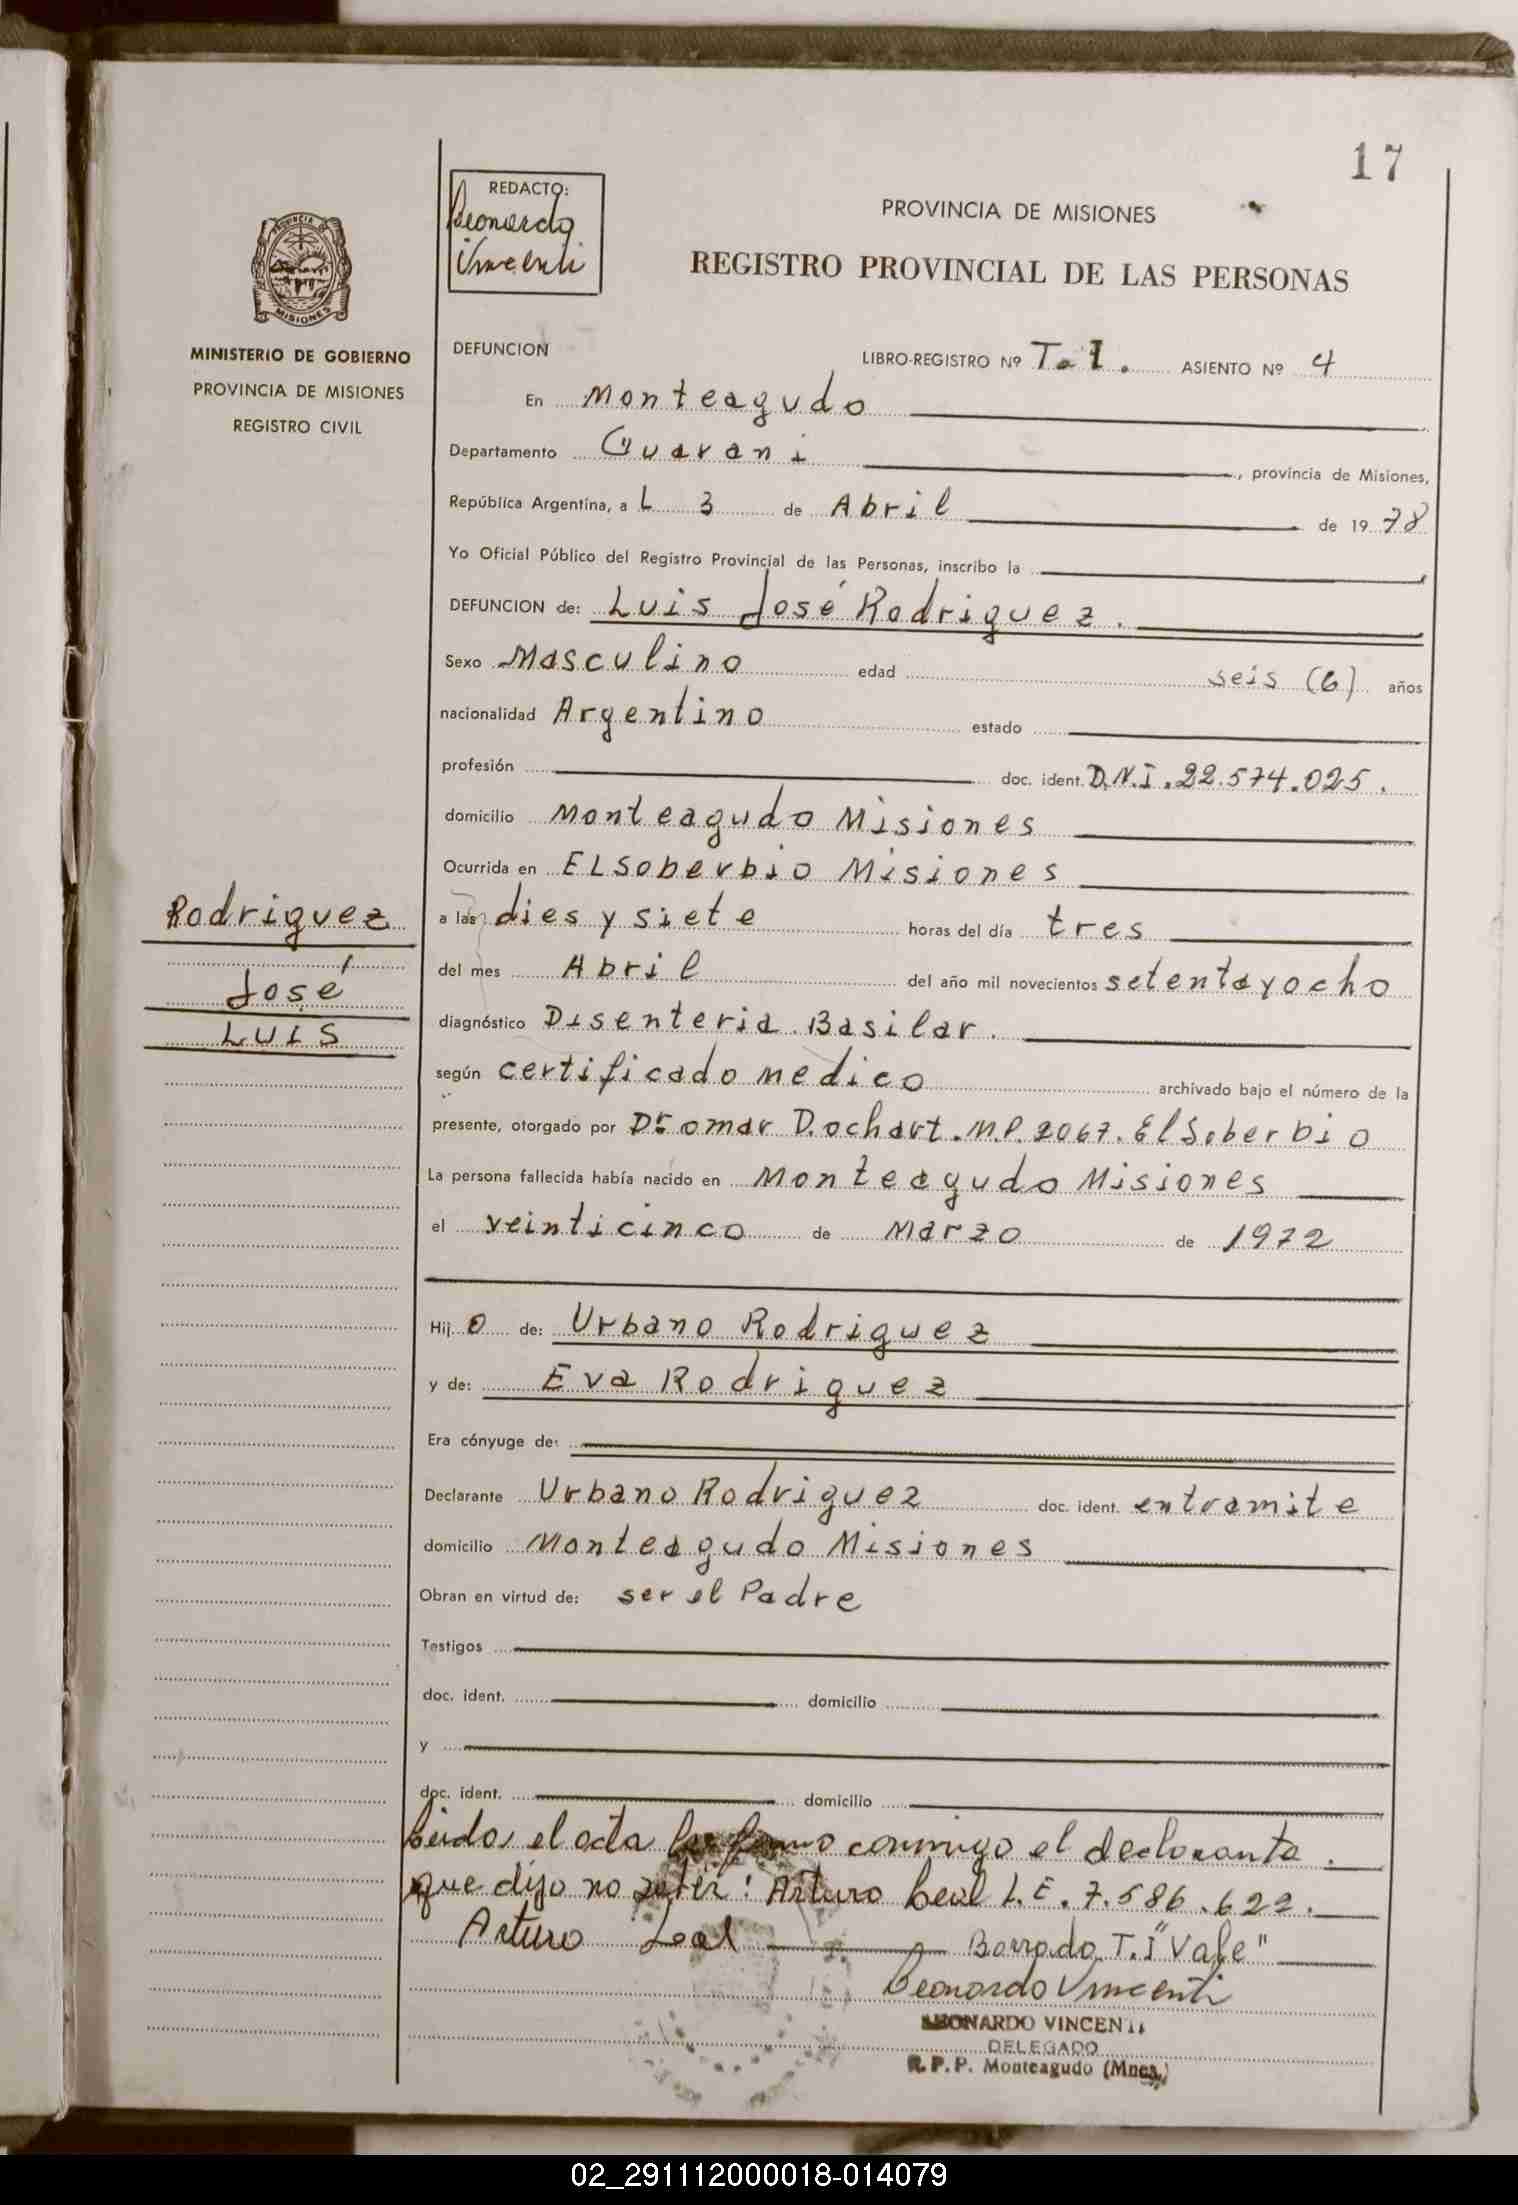 17
REDACTO:
Leonardo
Vincenti
PROVINCIA DE MISIONES
REGISTRO PROVINCIAL DE LAS PERSONAS
PROVINCIA
MISIONES
MINISTERIO DE GOBIERNO
PROVINCIA DE MISIONES
REGISTRO CIVIL
DEFUNCION
LIBRO-REGISTRO Nº T. 1. ASIENTO Nº 4
En Monteagudo
Departamento Guarani, provincia de Misiones,
República Argentina, a L 3 de Abril de 1978
Yo Oficial Público del Registro Provincial de las Personas, inscribo la
DEFUNCION de: Luis José Rodriguez.
Sexo Masculino edad seis (6) años
nacionalidad Argentino estado
profesión doc. ident. D.N.I. 22.574.025.
domicilio Monteagudo Misiones
Ocurrida en ELSoberbio Misiones
Rodriguez
José
LUIS
a las dies y siete horas del día tres
del mes Abril del año mil novecientos setenta y ocho
diagnóstico Disenteria Basilar.
según certificado medico archivado bajo el número de la
presente, otorgado por Dr. omar D. ochart. M.P. 2067. El Soberbio
La persona fallecida había nacido en Monteagudo Misiones
el veinticinco de Marzo de 1972
Hijo de: Urbano Rodriguez
y de: Eva Rodriguez
Era cónyuge de:
Declarante Urbano Rodriguez doc. ident. entramite
domicilio Monteagudo Misiones
Obran en virtud de: ser el Padre
Testigos
doc. ident. domicilio
y
doc. ident. domicilio
Leida el acta conmigo el declarante.
que dijo no : Arturo Leal L.E. 7.586.622.
Arturo Leal Borrado T. 1 "Vale"
Leonardo Vincenti
LEONARDO VINCENTI
DELEGADO
R. P. P. Monteagudo (Mnes.)
02_291112000018-014079